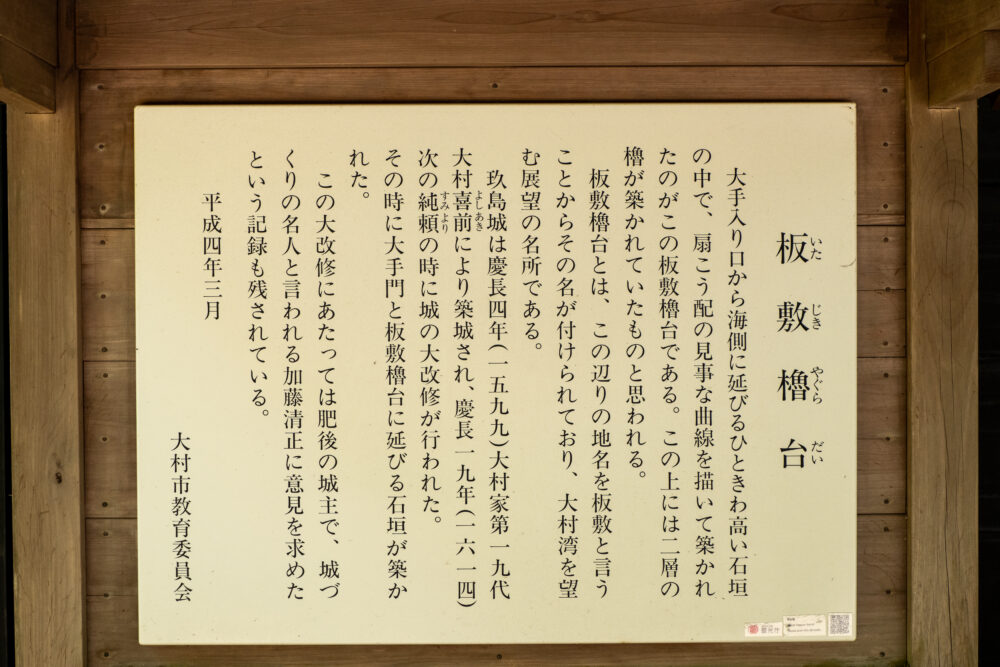 板敷櫓台
いた じき やぐら だい
大手入り口から海側に延びるひときわ高い石垣
の中で、扇こう配の見事な曲線を描いて築かれ
たのがこの板敷櫓台である。この上には二層の
櫓が築かれていたものと思われる。
板敷櫓台とは、この辺りの地名を板敷と言う
ことからその名が付けられており、大村湾を望
む展望の名所である。
玖島城は慶長四年(一五九九)大村家第一九代
大村喜前により築城され、慶長一九年(一六一四)
よしあき
次の純頼の時に城の大改修が行われた。
すみより
その時に大手門と板敷櫓台に延びる石垣が築か
れた。
この大改修にあたっては肥後の城主で、城づ
くりの名人と言われる加藤清正に意見を求めた
という記録も残されている。
平成四年三月
大村市教育委員会